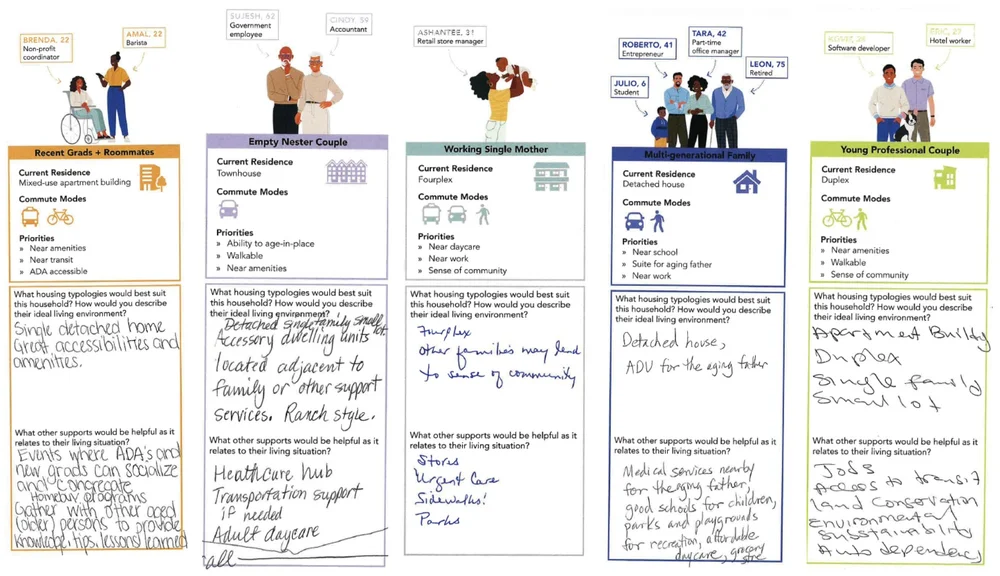 BRENDA, 22
Non-profit
coordinator
AMAL, 22
Barista
Recent Grads + Roommates
Current Residence
Mixed-use apartment building
Commute Modes
Priorities
» Near amenities
» Near transit
» ADA accessible
What housing typologies would best suit
this household? How would you describe
their ideal living environment?
Single detached home
Great accessibilities and
amenities.
What other supports would be helpful as it
relates to their living situation?
Events where ADA's and
new grads can socialize
and congregate
Homebuy programs
Gather with other aged
(older) persons to provide
knowledge, tips, lessons learned
SUJESH, 62
Government
employee
CINDY, 59
Accountant
Empty Nester Couple
Current Residence
Townhouse
Commute Modes
Priorities
» Ability to age-in-place
» Walkable
» Near amenities
What housing typologies would best suit
this household? How would you describe
their ideal living environment?
Detached single family small lot.
Accessory dwelling units
located adjacent to
family or other support
services. Ranch style.
What other supports would be helpful as it
relates to their living situation?
Healthcare hub
Transportation support
if needed
Adult daycare
all
ASHANTEE, 31
Retail store manager
Working Single Mother
Current Residence
Fourplex
Commute Modes
Priorities
» Near daycare
» Near work
» Sense of community
What housing typologies would best suit
this household? How would you describe
their ideal living environment?
Fourplex
other families may lend
to sense of community
What other supports would be helpful as it
relates to their living situation?
Stores
Urgent Care
Sidewalks!
Parks
ROBERTO, 41
Entrepreneur
TARA, 42
Part-time
office manager
LEON, 75
Retired
JULIO, 6
Student
Multi-generational Family
Current Residence
Detached house
Commute Modes
Priorities
» Near school
» Suite for aging father
» Near work
What housing typologies would best suit
this household? How would you describe
their ideal living environment?
Detached house,
ADU for the aging father
What other supports would be helpful as it
relates to their living situation?
Medical services nearby
for the aging father,
good schools for children,
parks and playgrounds
for recreation, affordable
daycare, grocery
store
28
Software developer
ERIC, 27
Hotel worker
Young Professional Couple
Current Residence
Duplex
Commute Modes
Priorities
» Near amenities
» Walkable
» Sense of community
What housing typologies would best suit
this household? How would you describe
their ideal living environment?
Apartment Building
Duplex
Single Family
Small lot
What other supports would be helpful as it
relates to their living situation?
Jobs
Access to transit
land Conservation
Environmental
Sustainability
Auto dependency